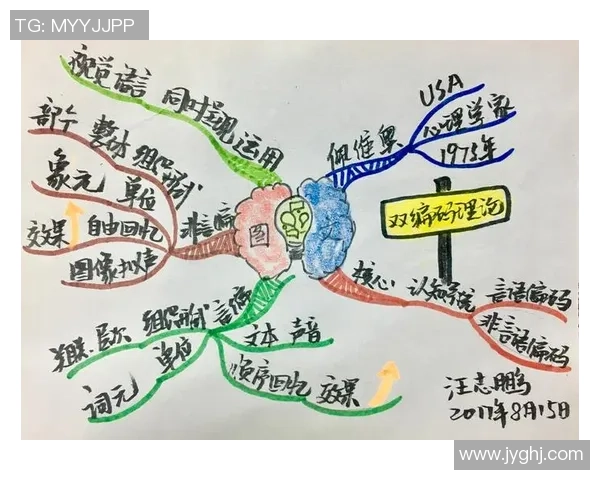 TG: MYYJJPP
视觉 语言 同时呈现 运用
佩维奥
USA
心理学家
1975年
双编码理论
部分 整体 组织形式
象元 单位
效果 自由回忆
图像 拟声
非言语
图
文
核心 认知系统
言語编码
非言語编码
组织形式 言语
单位
词元
文本 声音
顺序回忆 效果
汪志鹏
2017年8月15日
www.jyghj.com